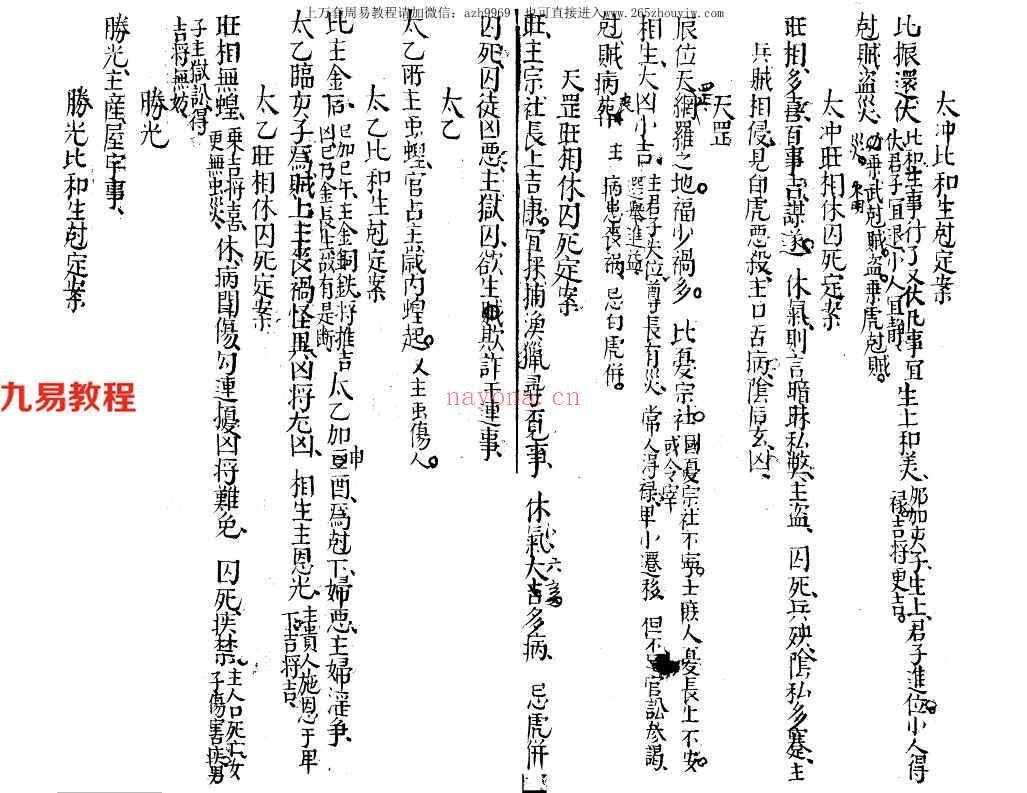 上万套周易教程请加微信：azh9969 也可直接进入www.265zhouyiw.com
太冲比和生尅定案
比振還伏 比和生事行了又伏凡事宜
伏君子宜退小人宜靜 生上和美 那加夾子生上君子進位小人得
禄吉将更吉
尅賊盜災 乘武尅賊盜乘虎尅賊
災
太冲旺相休囚死定案
旺相多喜百事吉謀遂 休氣則言暗昧私弊主盜 囚死兵殃陰私多蹇主
兵賊相侵見白虎惡殺主口舌病陰后玄凶
天罡
辰位天網羅之地福少禍多 比憂宗社 國憂宗社不寧士庶人憂長上不安
或令宰
相生大凶小吉 主君子失位尊長有災 常人得禄卑小遷移 但不 官訟参謁
選舉進益
尅賊病葬 主病患喪禍 忌白虎併
天罡旺相休囚死定案
旺主宗社長上吉康宜採捕漁獵尋覓事 休氣大吉多病 忌虎併
囚死囚徒凶惡主獄囚欲生 欺詐干連事
太乙
太乙所主虫蝗官占主歲内蝗起 又主虫傷人
太乙比和生尅定案
比主金后 巳加巳午主金銅鉄将推吉
凶巳乃金長生故有是断 太乙加 申酉爲尅下婦悪主婦淫争
太乙臨亥子爲賊上主喪禍怪異凶将尤凶 相生主恩光 主貴人施恩于卑
下吉将吉
太乙旺相休囚死定案
旺相無蝗 乘吉将喜
更無虫災 休病閧傷勾連擾凶将難免 囚死疾禁 主人口死亡女
子傷害疾男
子主獄訟得
吉将無妨
勝光
勝光主產屋宇事
勝光比和生尅定案
九易教程
nayona.cn